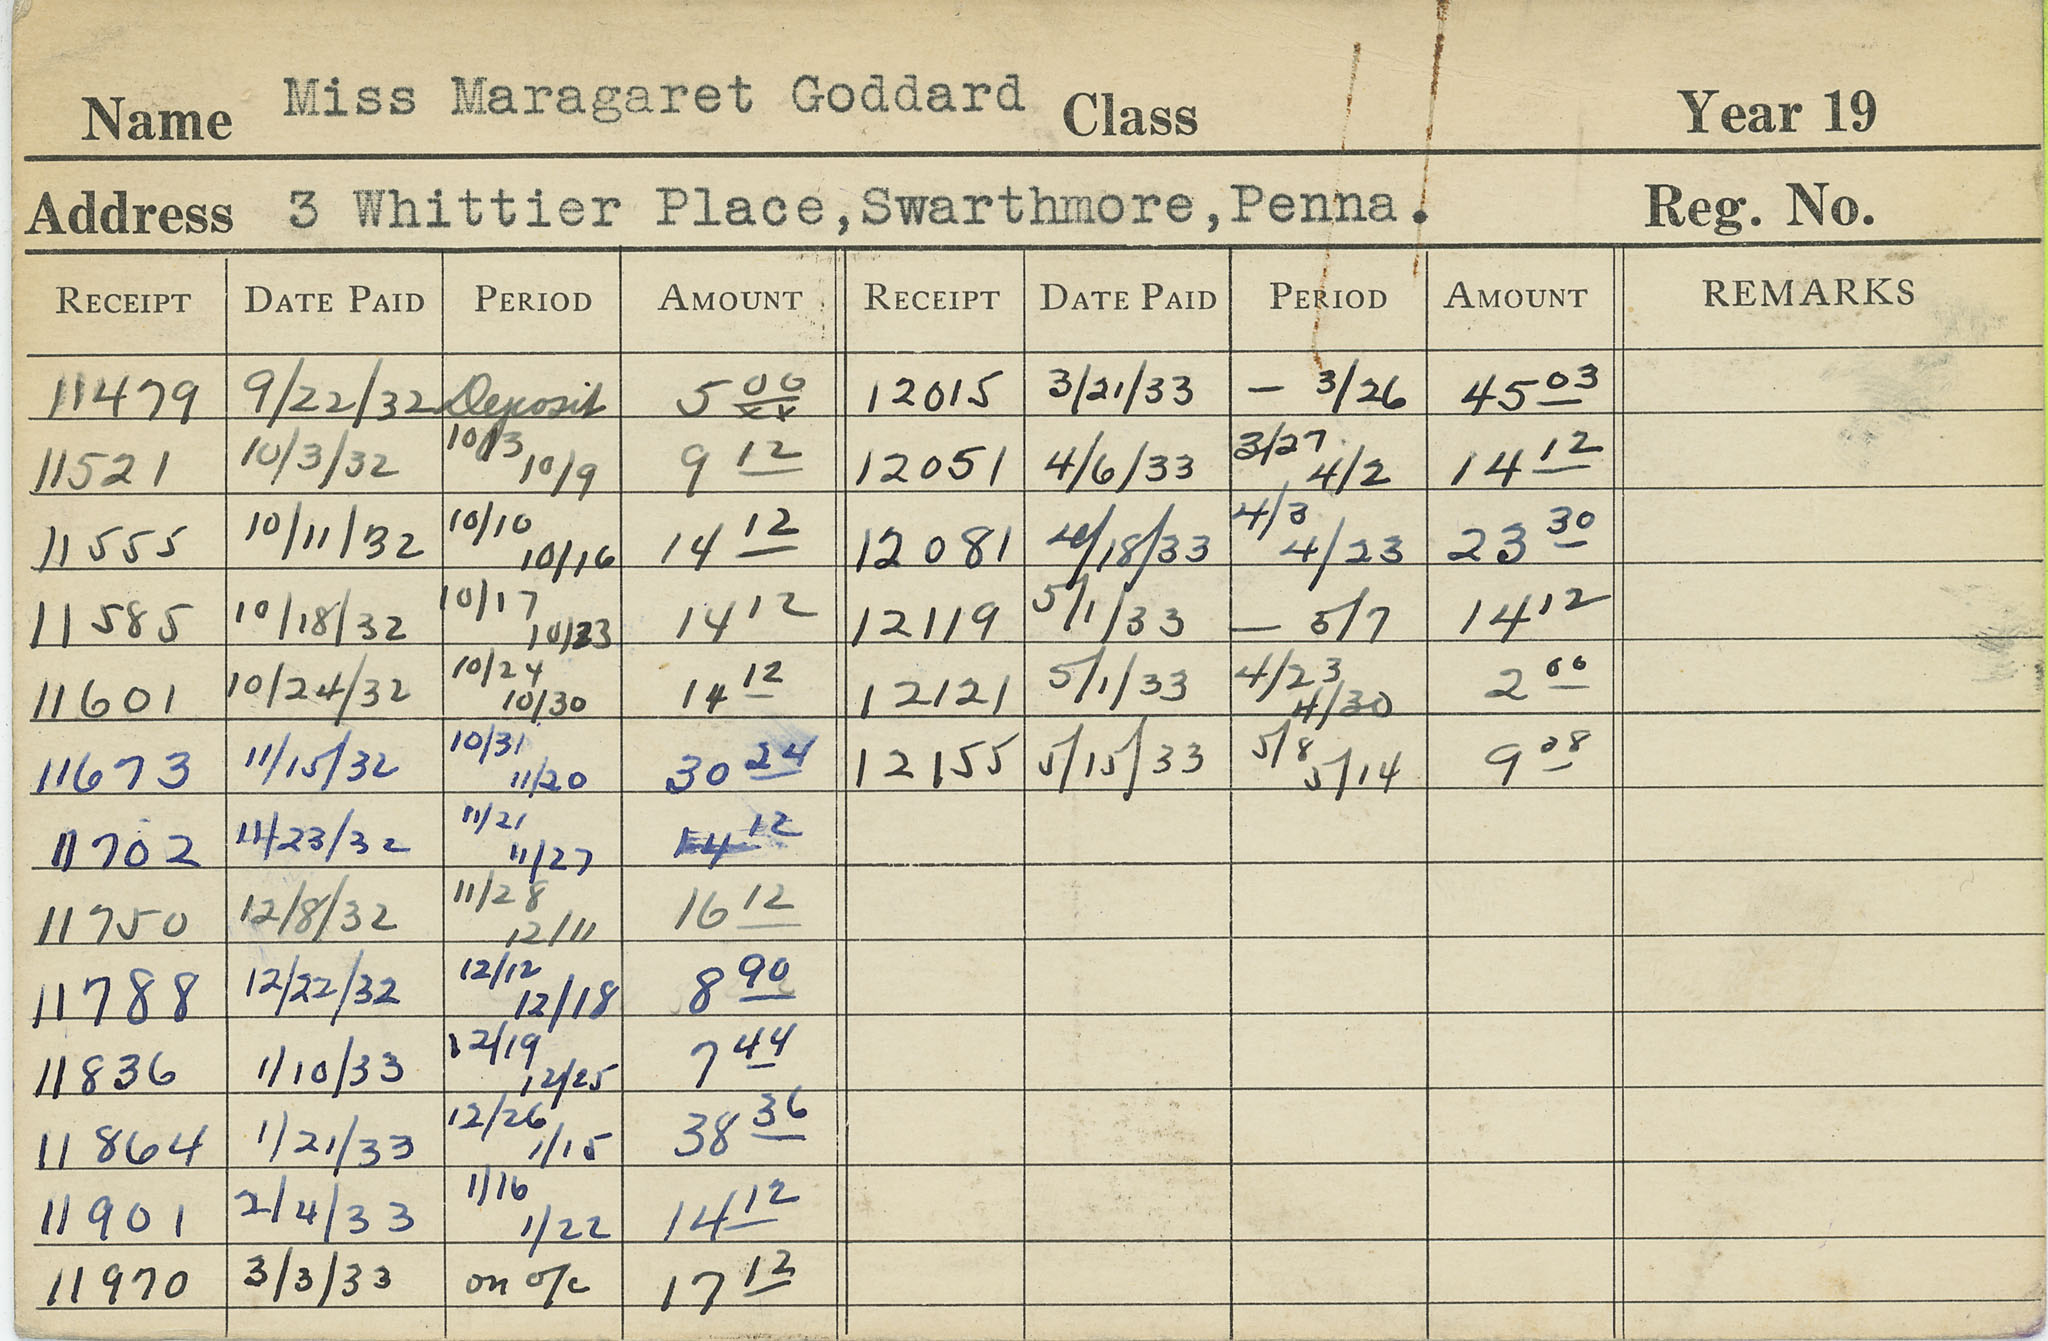 Name Miss Maragaret Goddard Class Year 19
Address 3 Whittier Place, Swarthmore, Penna. Reg. No.
RECEIPT DATE PAID PERIOD AMOUNT RECEIPT DATE PAID PERIOD AMOUNT REMARKS
11479 9/22/32 Deposit 5 00 xx 12015 3/21/33 – 3/26 45 03
11521 10/3/32 10/3 10/9 9 12 12051 4/6/33 3/27 4/2 14 12
11555 10/11/32 10/10 10/16 14 12 12081 4/18/33 4/3 4/23 23 30
11585 10/18/32 10/17 10/23 14 12 12119 5/1/33 – 5/7 14 12
11601 10/24/32 10/24 10/30 14 12 12121 5/1/33 4/23 4/30 2 00
11673 11/15/32 10/31 11/20 30 24 12155 5/15/33 5/8 5/14 9 08
11702 11/23/32 11/21 11/27 14 12
11750 12/8/32 11/28 12/11 16 12
11788 12/22/32 12/12 12/18 8 90
11836 1/10/33 12/19 12/25 7 44
11864 1/21/33 12/26 1/15 38 36
11901 2/4/33 1/16 1/22 14 12
11970 3/3/33 on o/c 17 12